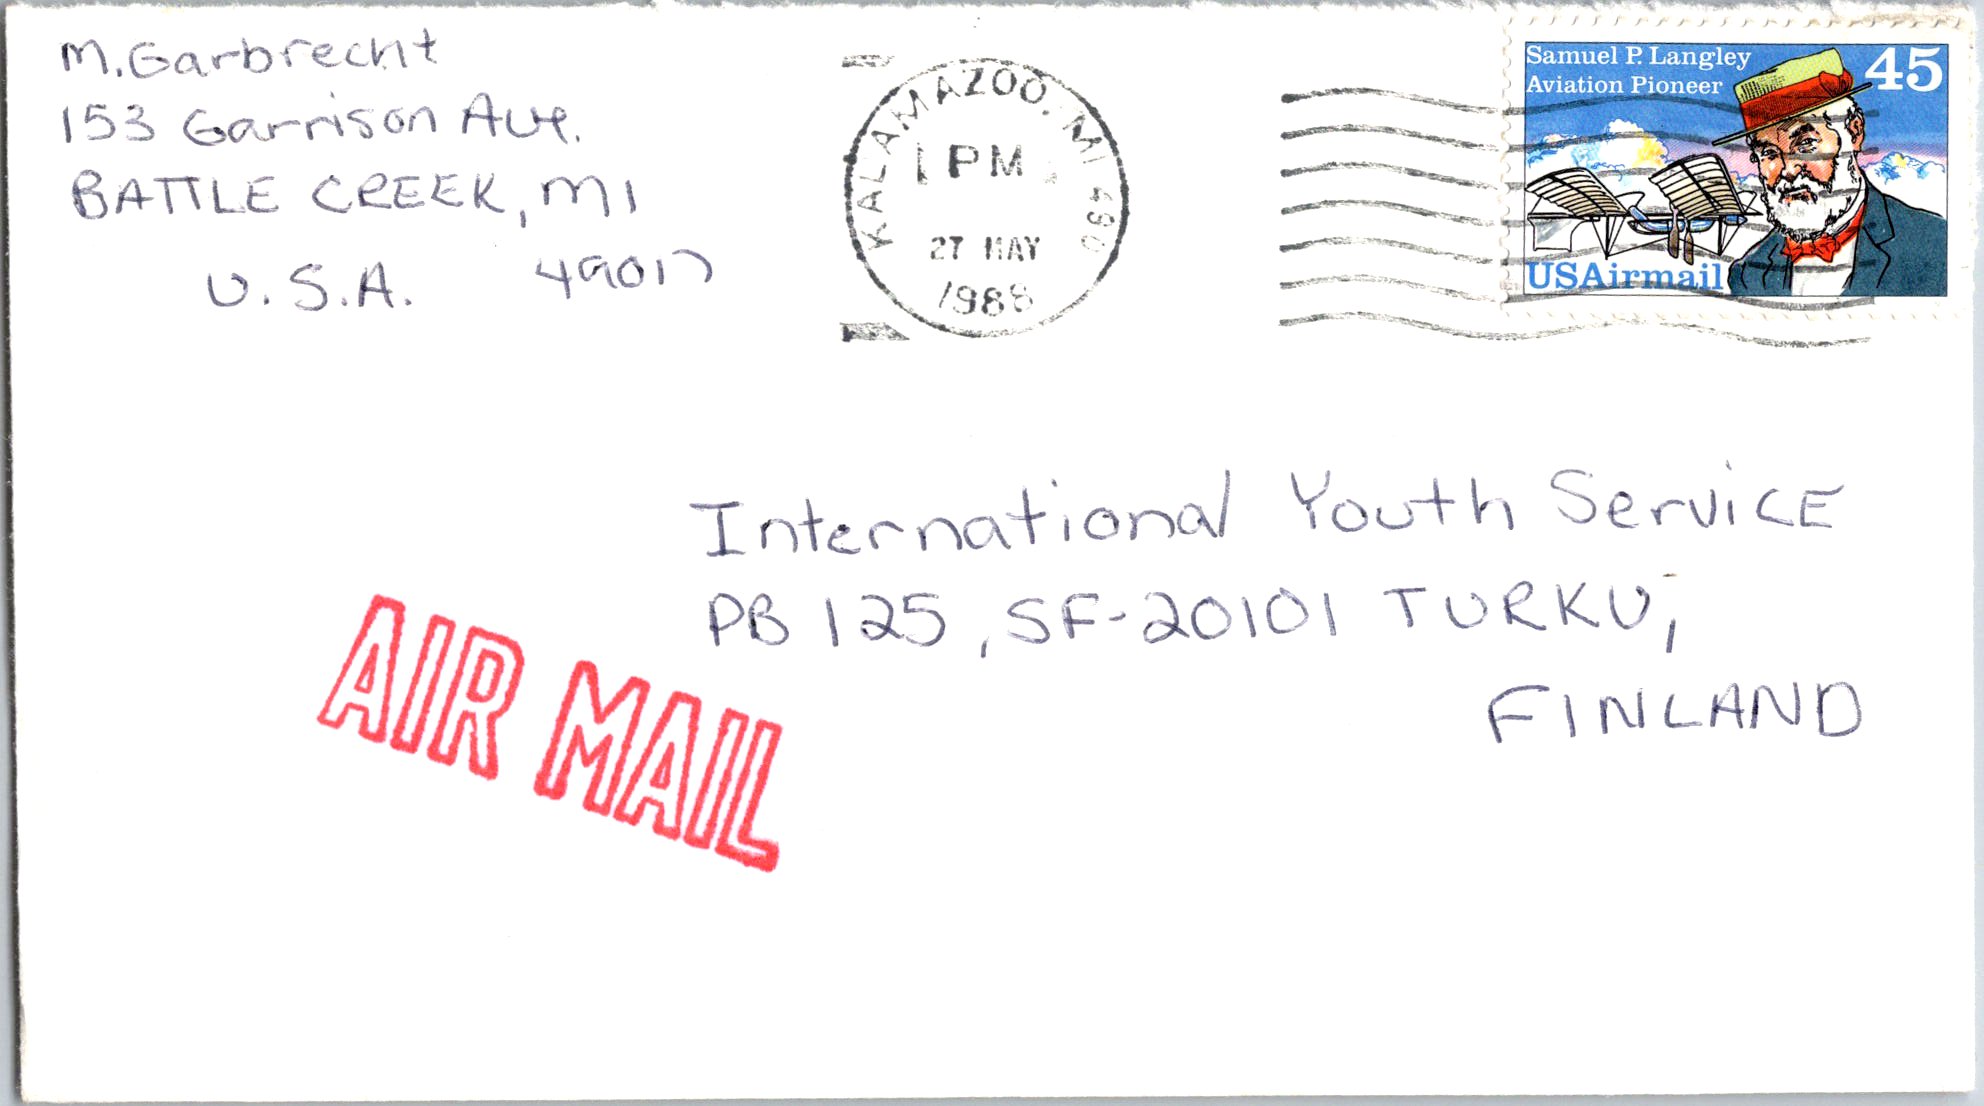 M. Garbrecht
153 Garrison Ave.
BATTLE CREEK, MI
U.S.A. 49017
KALAMAZOO, MI 490
PM
27 MAY
1988
Samuel P. Langley
Aviation Pioneer
45
USAirmail
International Youth Service
PB 125, SF-20101 TURKU,
FINLAND
AIR MAIL